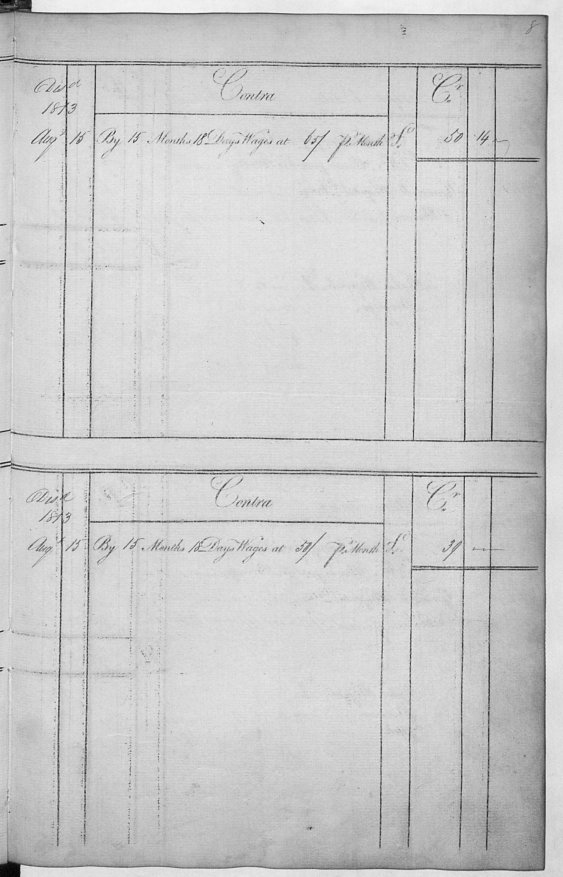 8
Disd
1813
Contra
Cr
Augt 15 By 15 Months 18 Days Wages at 65/ pr Month £ 50 14 —
Disd
1813
Contra
Cr
Augt 15 By 15 Months 18 Days Wages at 50/ pr Month £ 39 —